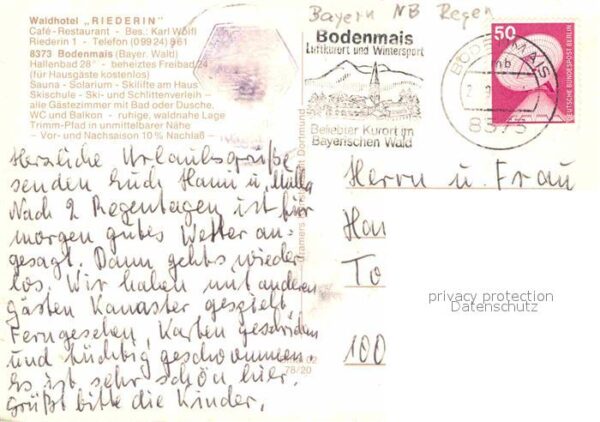 Bayern NB Regen
Waldhotel „RIEDERIN"
Café-Restaurant - Bes.: Karl Wölfl
Riederin 1 - Telefon (09924) 861
8373 Bodenmais (Bayer. Wald)
Hallenbad 28° - beheiztes Freibad 24°
(für Hausgäste kostenlos)
Sauna - Solarium - Skilifte am Haus
Skischule - Ski- und Schlittenverleih -
alle Gästezimmer mit Bad oder Dusche,
WC und Balkon - ruhige, waldnahe Lage
Trimm-Pfad in unmittelbarer Nähe
- Vor- und Nachsaison 10% Nachlaß -
Herzliche Urlaubsgrüße
senden Euch Hanni u.
Nach 2 Regentagen ist für
morgen gutes Wetter an-
gesagt. Dann gehts wieder
los. Wir haben mit anderen
Gästen Kanaster gespielt
Ferngesehen, Karten geschrieben
und tüchtig geschwommen.
Es ist sehr schön hier.
Grüßt bitte die Kinder,
78/20
Dortmund
Bodenmais
Luftkurort und Wintersport
Beliebter Kurort im
Bayerischen Wald
BODENMAIS
mb
8373
50
DEUTSCHE BUNDESPOST BERLIN
Herrn u. Frau
Han
To
100
privacy protection
Datenschutz